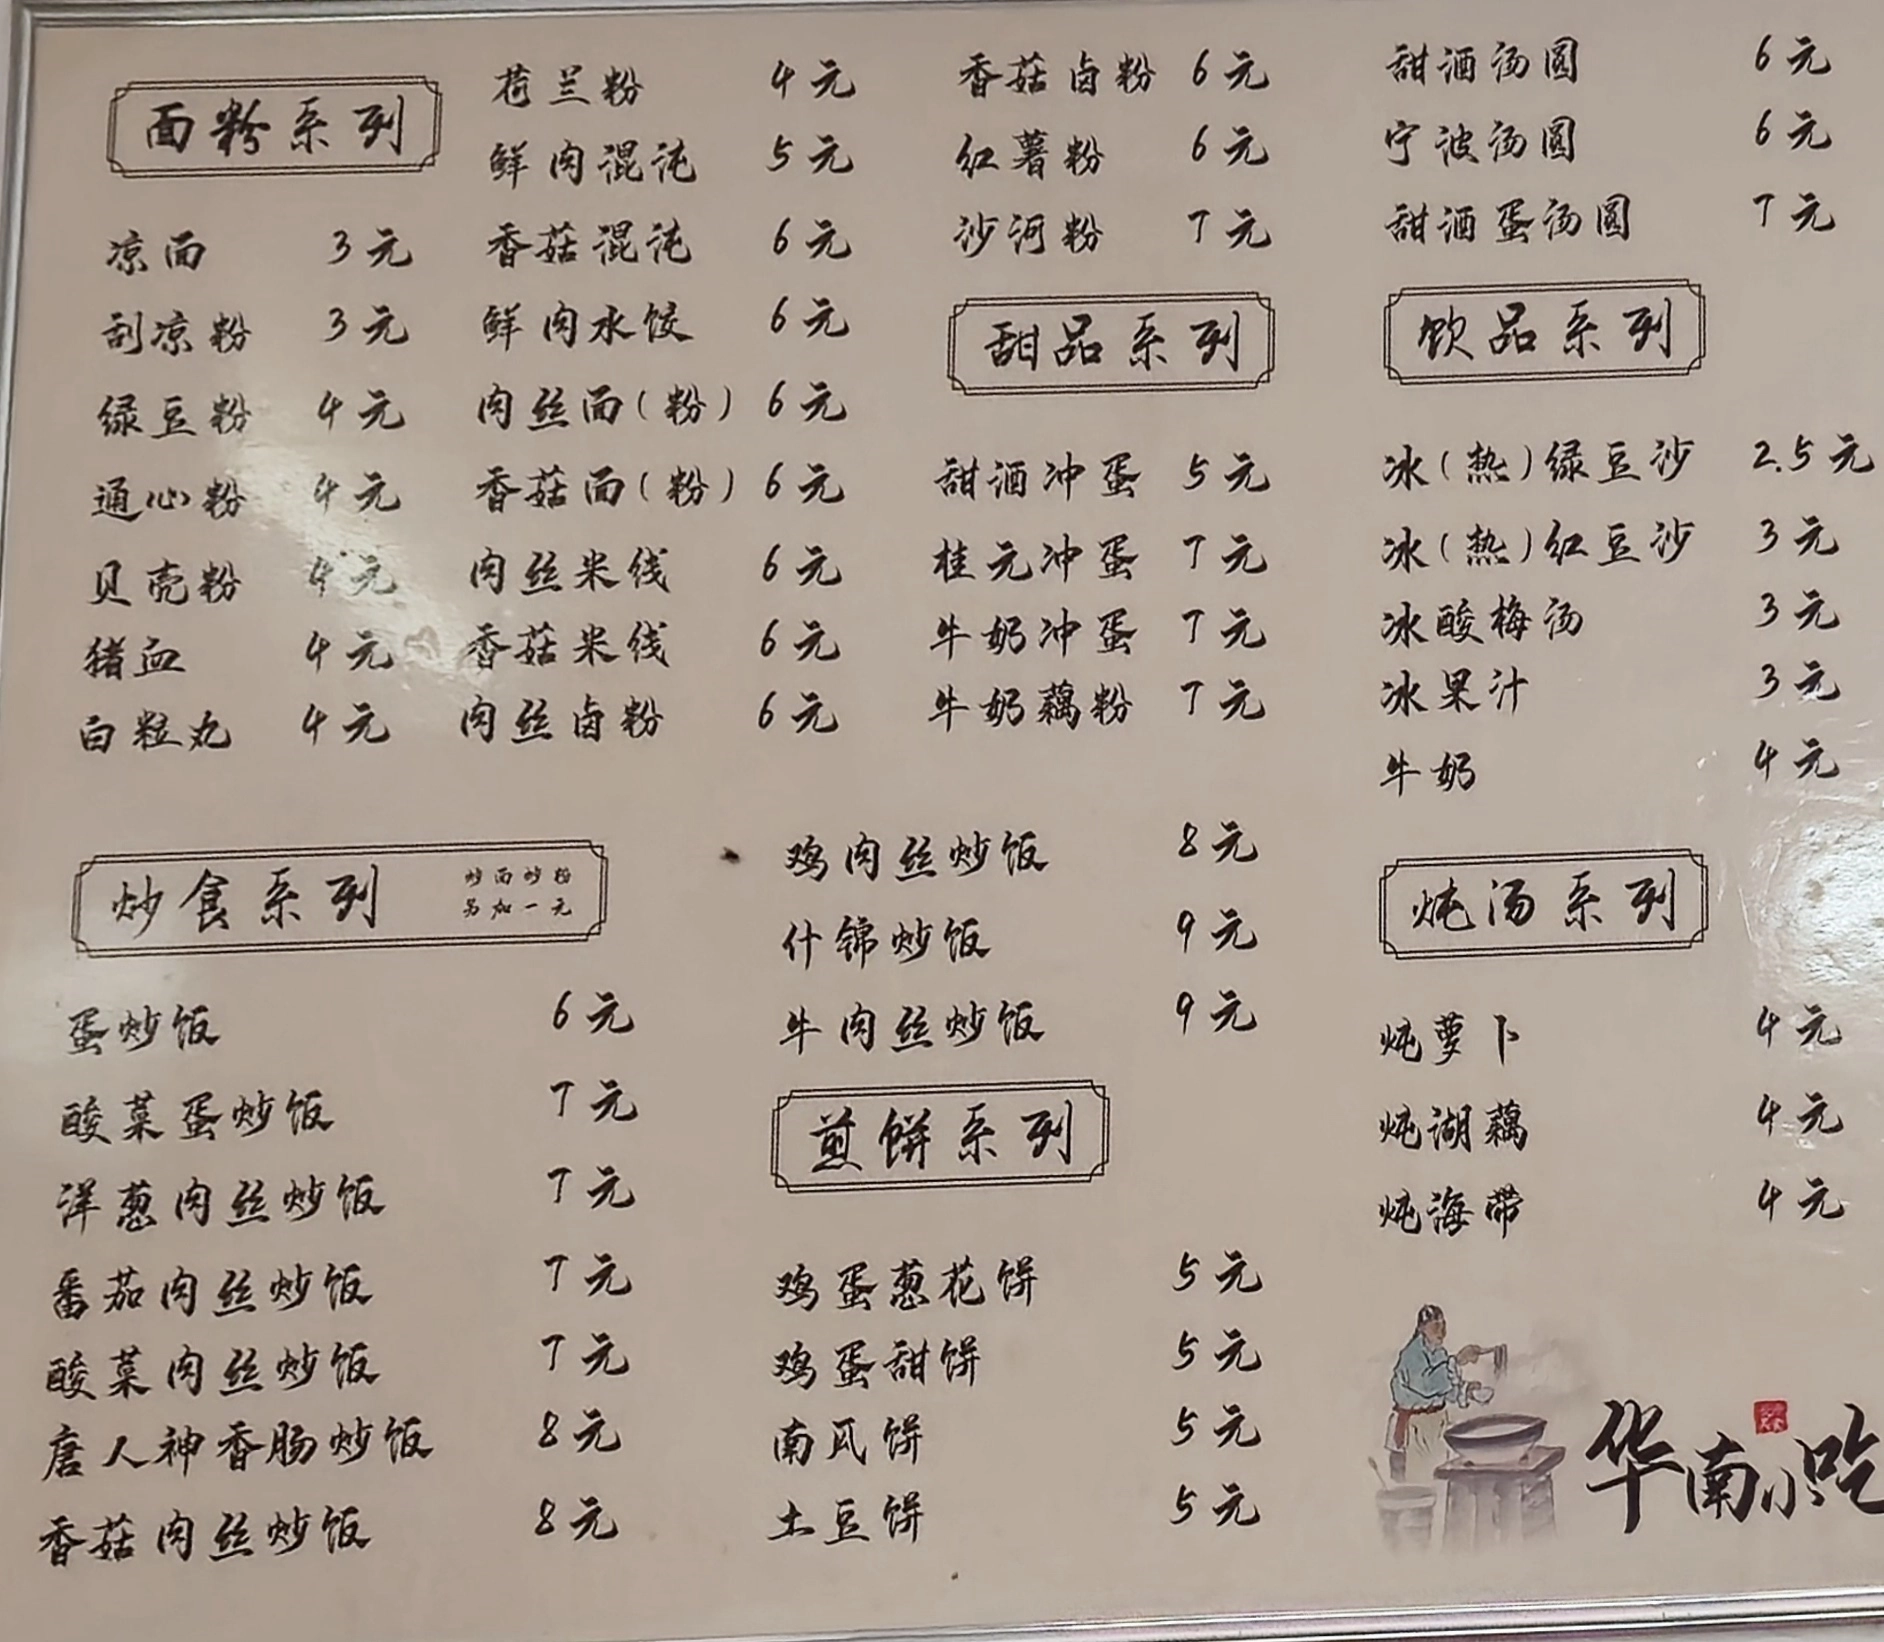 面粉系列
凉面 3元
刮凉粉 3元
绿豆粉 4元
通心粉 4元
贝壳粉 4元
猪血 4元
白粒丸 4元
荷兰粉 4元
鲜肉混沌 5元
香菇混沌 6元
鲜肉水饺 6元
肉丝面(粉) 6元
香菇面(粉) 6元
肉丝米线 6元
香菇米线 6元
肉丝卤粉 6元
香菇卤粉 6元
红薯粉 6元
沙河粉 7元
甜品系列
甜酒冲蛋 5元
桂元冲蛋 7元
牛奶冲蛋 7元
牛奶藕粉 7元
甜酒汤圆 6元
宁波汤圆 6元
甜酒蛋汤圆 7元
饮品系列
冰(热)绿豆沙 2.5元
冰(热)红豆沙 3元
冰酸梅汤 3元
冰果汁 3元
牛奶 4元
炒食系列
炒面炒粉
另加一元
蛋炒饭 6元
酸菜蛋炒饭 7元
洋葱肉丝炒饭 7元
番茄肉丝炒饭 7元
酸菜肉丝炒饭 7元
唐人神香肠炒饭 8元
香菇肉丝炒饭 8元
鸡肉丝炒饭 8元
什锦炒饭 9元
牛肉丝炒饭 9元
煎饼系列
鸡蛋葱花饼 5元
鸡蛋甜饼 5元
南瓜饼 5元
土豆饼 5元
炖汤系列
炖萝卜 4元
炖湖藕 4元
炖海带 4元
华南小吃